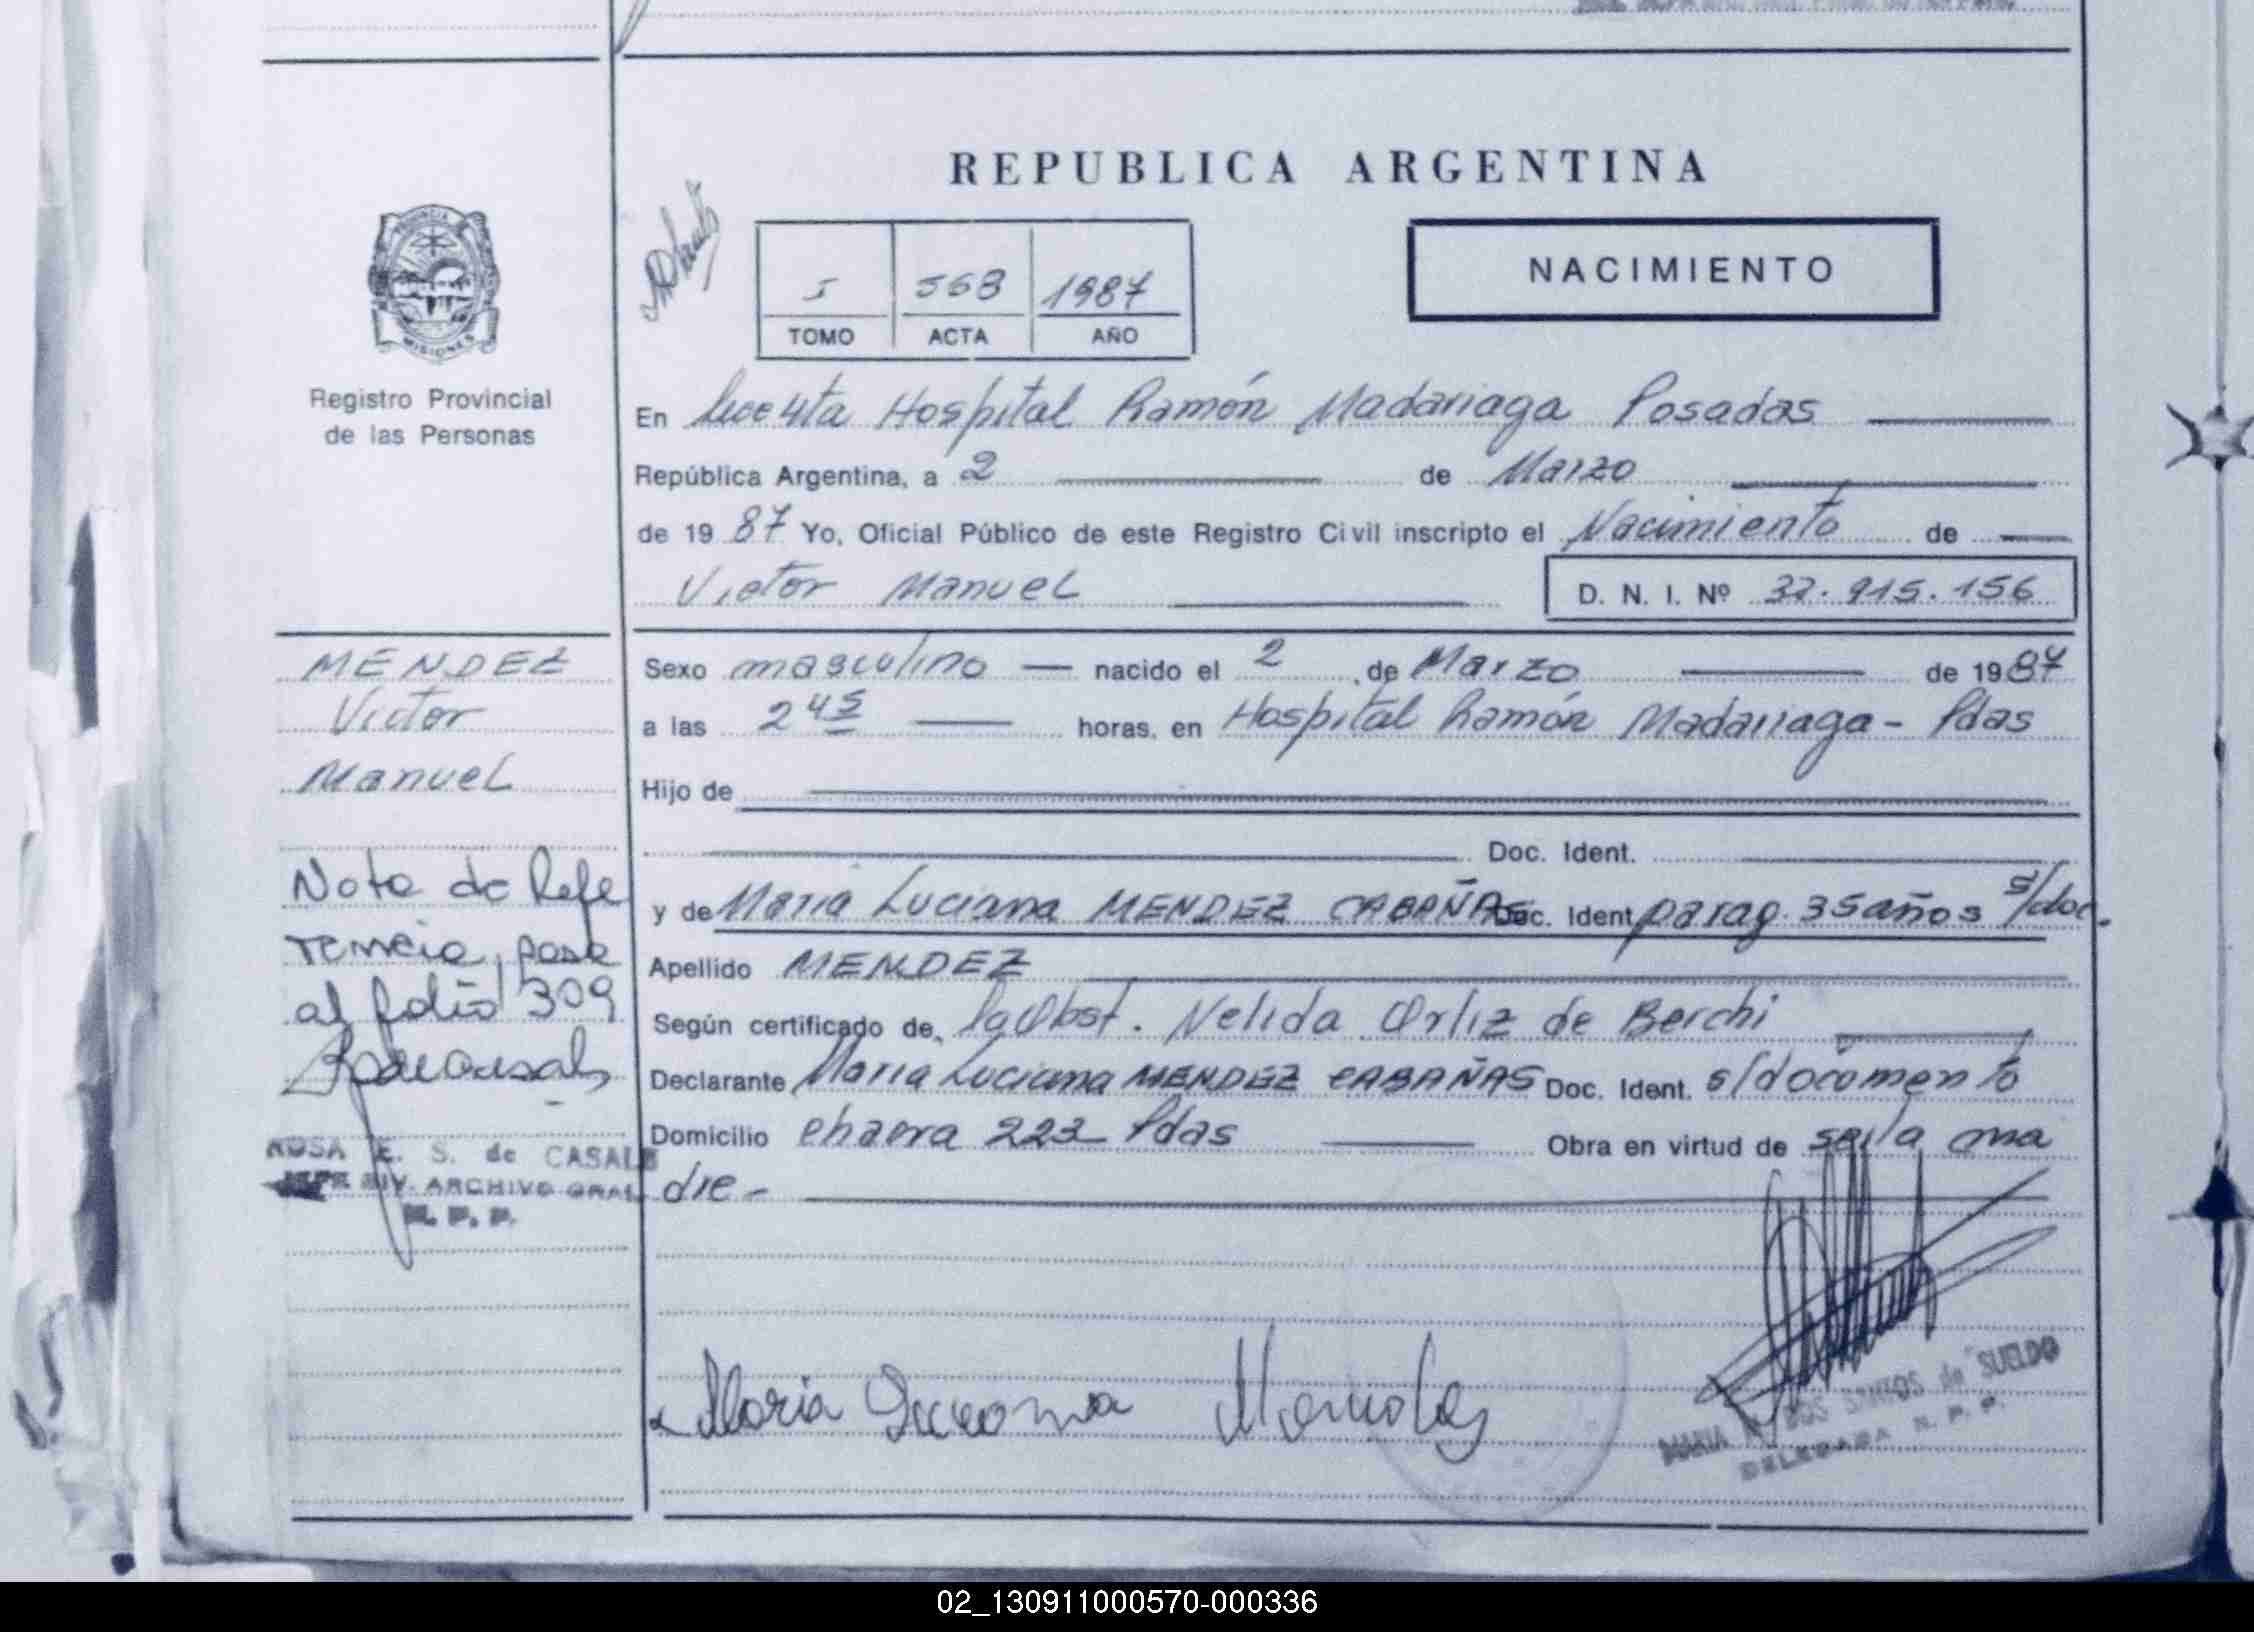 REPUBLICA ARGENTINA
PROVINCIA
MISIONES
Registro Provincial
de las Personas
568 1987
TOMO ACTA AÑO
NACIMIENTO
En Hospital Ramón Madariaga Posadas
República Argentina, a 2 de Marzo
de 1987 Yo, Oficial Público de este Registro Civil inscripto el Nacimiento de
Victor Manuel D. N. I. Nº 32.915.156
MENDEZ
Victor
Manuel
Nota de Refe
rencia, pase
al folio 309
ROSA E. S. de CASALS
JEFE DIV. ARCHIVO GRAL.
R. P. P.
Sexo masculino nacido el 2 de Marzo de 1987
a las 2 45 horas, en Hospital Ramón Madariaga - Pdas
Hijo de
Doc. Ident.
y de Maria Luciana MENDEZ CABAÑAS Doc. Ident. parag. 35 años s/doc.
Apellido MENDEZ
Según certificado de la Obst. Nelida Ortiz de Berchi
Declarante Maria Luciana MENDEZ CABAÑAS Doc. Ident. s/documento
Domicilio chacra 223 Pdas Obra en virtud de ser la ma
dre -
MARIA DOS SANTOS de SUELDO
DELEGADA R. P. P.
02_130911000570-000336